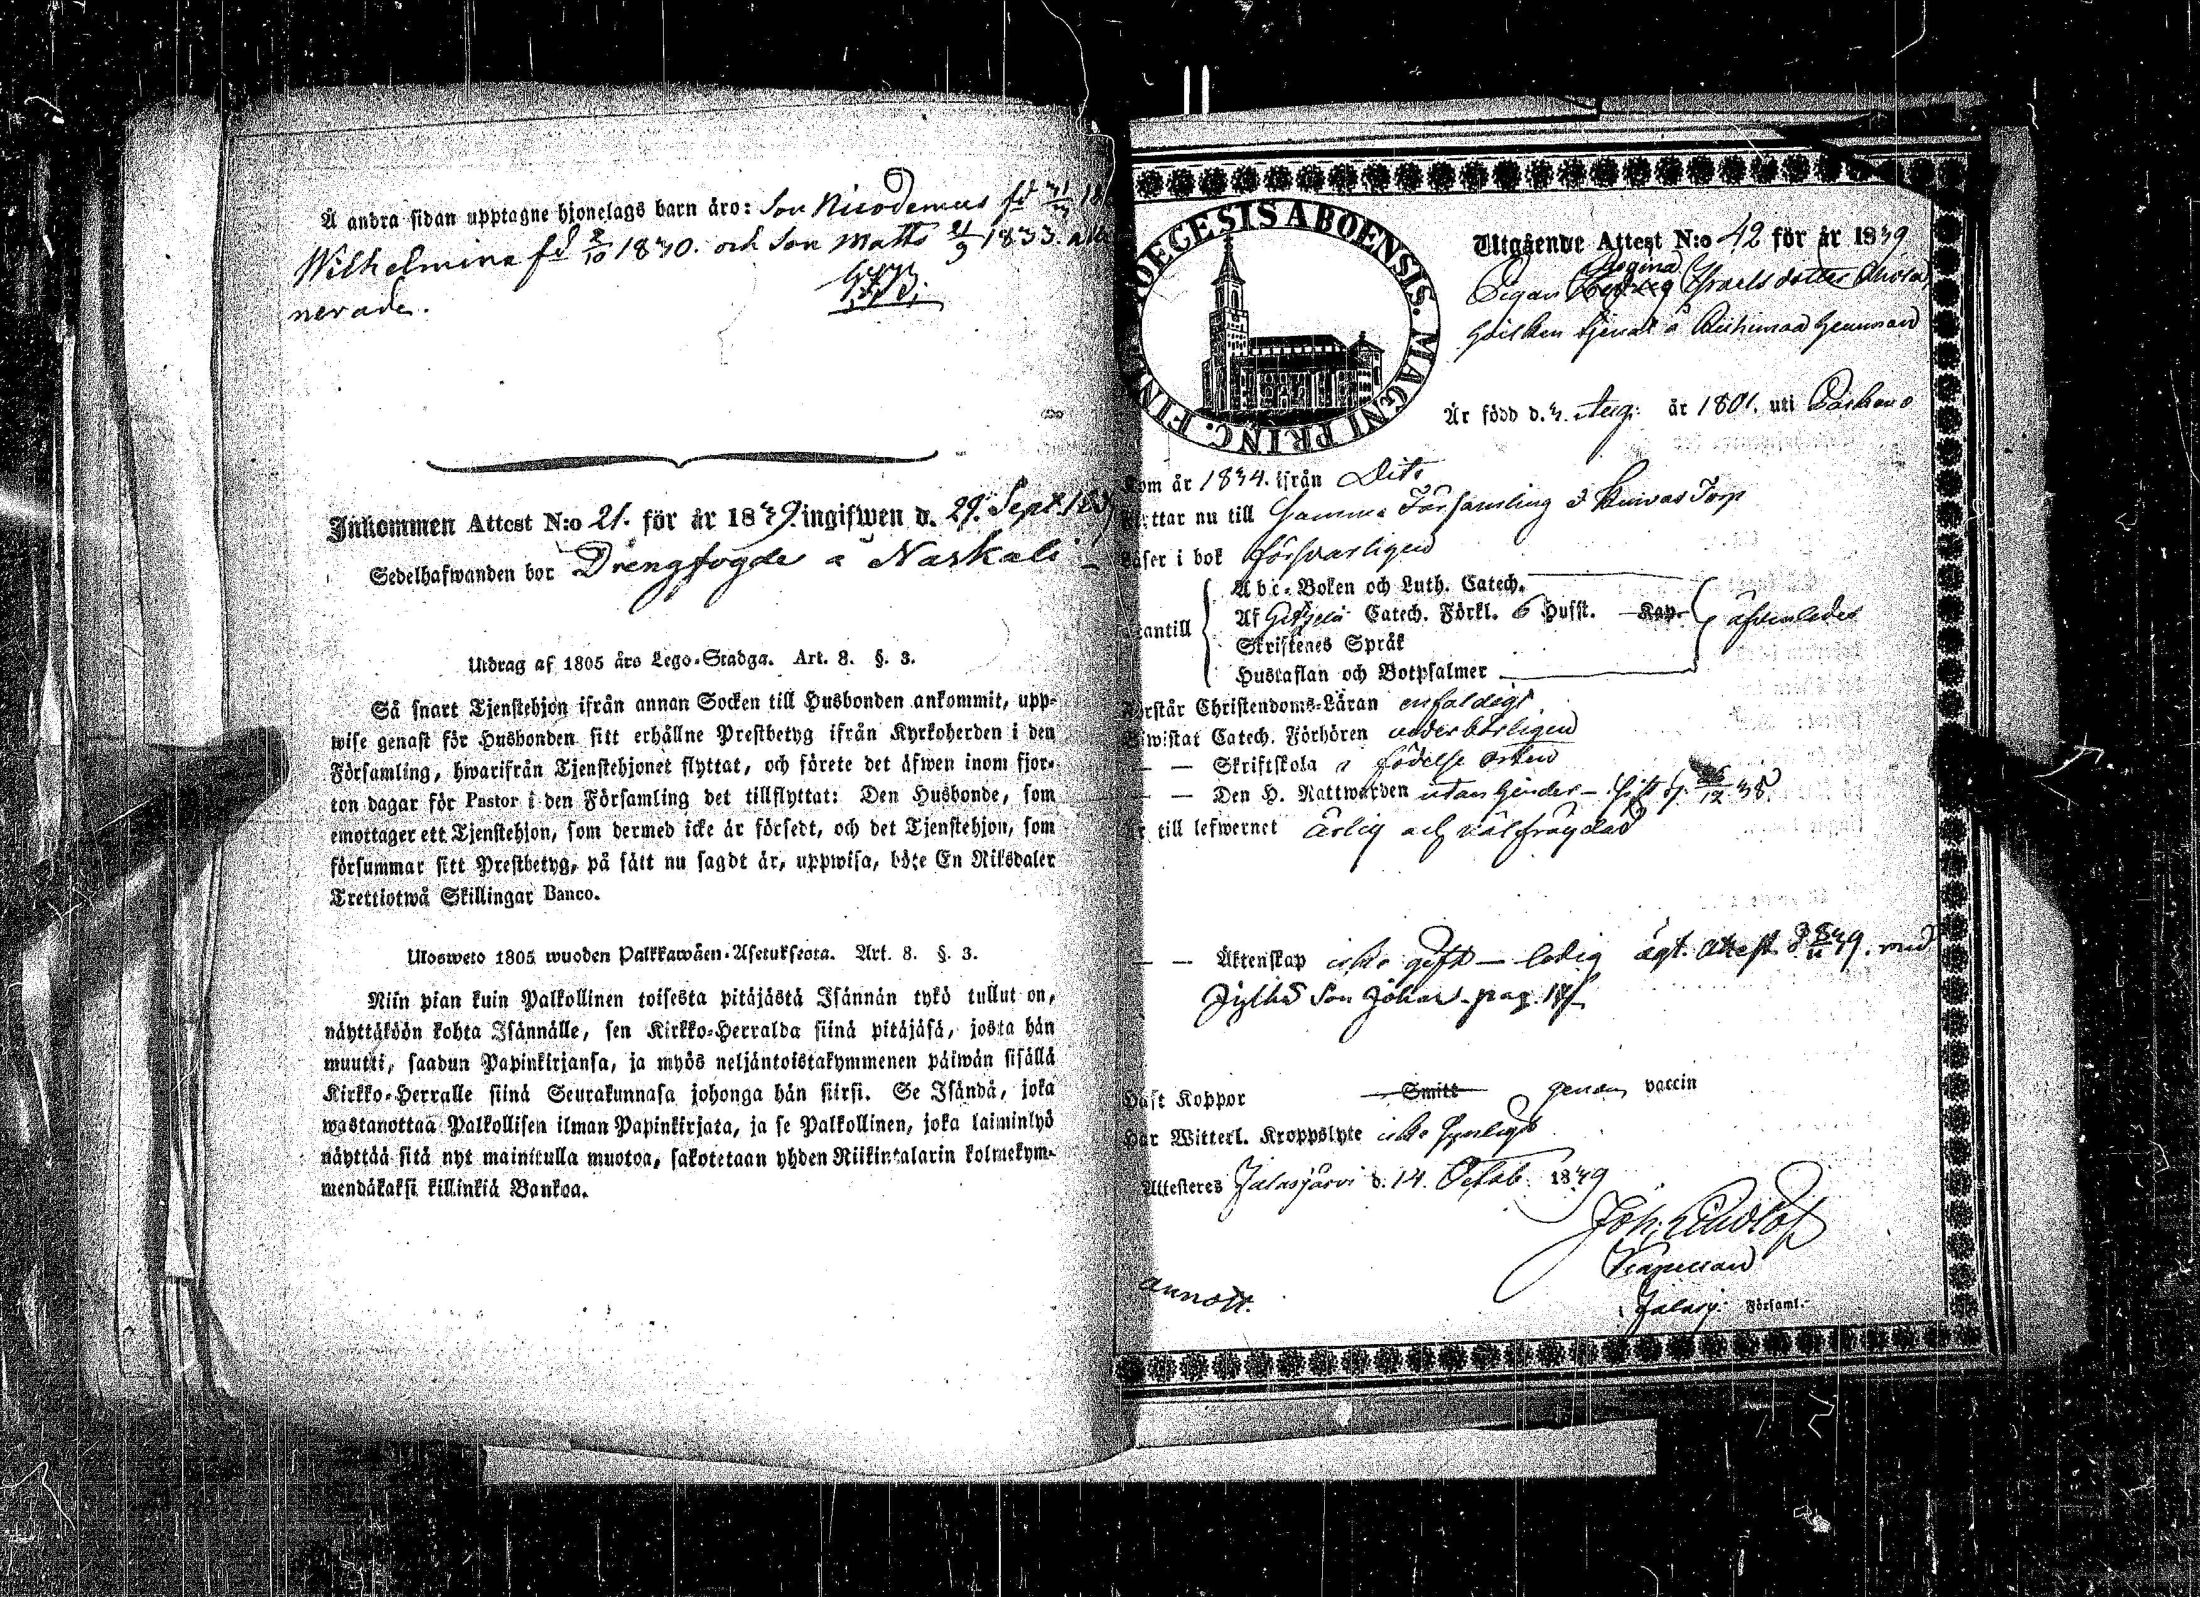 Å andra sidan upptagne hjonelags barn äro: Son Nicodemus fd
Wilhelmina fd 2/10 1830. och Son Matts 21/9 1833.
nerade.
Inkommen Attest N:o 21. för år 1839 ingifwen d. 29. Sept.
Sedelhafwanden bor Drengfogde a Naskali
Utdrag af 1805 års Lego-Stadga. Art. 8. §. 3.
Så snart Tjenstehjon ifrån annan Socken till Husbonden ankommit, upp-
wise genast för Husbonden sitt erhållne Prestbetyg ifrån Kyrkoherden i den
Församling, hwarifrån Tjenstehjonet flyttat, och förete det äfwen inom fjor-
ton dagar för Pastor i den Församling det tillflyttat: Den Husbonde, som
emottager ett Tjenstehjon, som dermed icke är försedt, och det Tjenstehjon, som
försummar sitt Prestbetyg, på sätt nu sagdt är, uppwisa, böte En Riksdaler
Trettiotwå Skillingar Banco.
Ulosweto 1805 wuoden Palkkawäen-Asetuksesta. Art. 8. §. 3.
Niin pian kuin Palkollinen toisesta pitäjästä Isännän tykö tullut on,
näyttäköön kohta Isännälle, sen Kirkko-Herralda siinä pitäjäsä, josta hän
muutti, saadun Papinkirjansa, ja myös neljäntoistakymmenen päiwän sisällä
Kirkko-Herralle siinä Seurakunnasa johonga hän siirsi. Se Isändä, joka
wastanottaa Palkollisen ilman Papinkirjata, ja se Palkollinen, joka laiminlyö
näyttää sitä nyt mainitulla muotoa, sakotetaan yhden Riikintalarin kolmekym-
mendäkaksi killinkiä Bankoa.
DIOECESIS ABOENSIS. MAGNI PRINC. FIN
Utgående Attest N:o 42 för år 1839
Regina
Pigan Israelsdotter
hvilken tjenat å
Är född d. 3. Aug: år 1801. uti Parkano
Kom år 1834. ifrån Dito
Flyttar nu till Samma Församling å Torp
Läser i bok försvarligen
Utantill
Abc-Boken och Luth. Catech.
Af Catech. Förkl. 6 Husst. Kap.
äfvenledes
Skriftenes Språk
Hustaflan och Botpsalmer
Förstår Christendoms-Läran enfaldigt
Biwistat Catech. Förhören vederbörligen
— — Skriftskola i födelse orten
— — Den H. Nattwarden utan hinder 26/12 38.
Är till lefwernet ärlig och välfrägdad
— — Äktenskap icke gift — ledig ägt. attest med
Jylhä Son Johan pag.
Haft Koppor Smitt genom vaccin
Har Witterl. Kroppslyte icke synligt
Attesteres Jalasjärvi d. 14. Octob. 1839
Joh:
Capellan
i Jalasj: Församl.
annott.